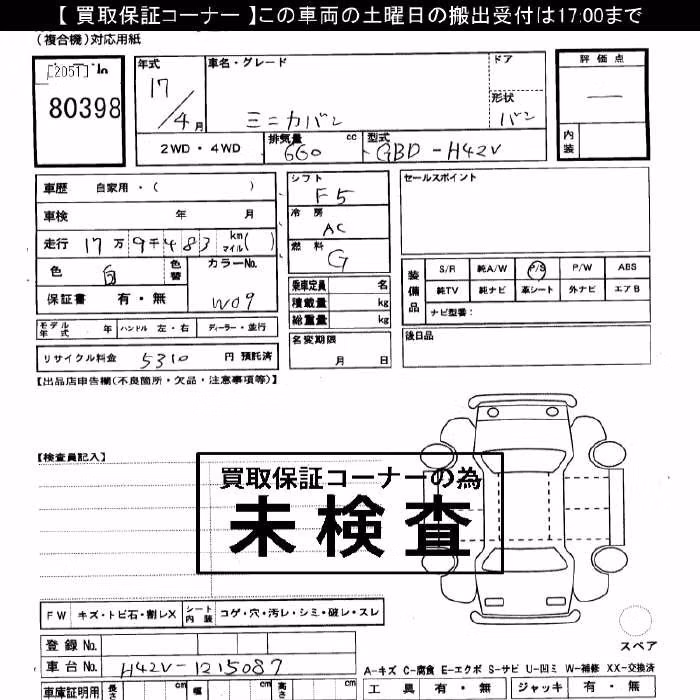 【 買取保証コーナー 】この車両の土曜日の搬出受付は17:00まで
(複合機)対応用紙
80398
年式
17/4月
車名・グレード
ミニカバン
ドア
形状
バン
評価点
―
内装
2WD・4WD
排気量 660 cc
型式 GBD-H42V
車歴 自家用・( )
車検 年 月
走行 17万9千483 km マイル( )
色 白 色替
カラーNo. W09
保証書 有・無
モデル年式 年 ハンドル 左・右 ディーラー・並行
リサイクル料金 5310 円 預託済
シフト F5
冷房 AC
燃料 G
乗車定員 名
積載量 kg
総重量 kg
名変期限 月 日
セールスポイント
装備品
S/R 純A/W P/S P/W ABS
純TV 純ナビ 革シート 外ナビ エアB
ナビ型番:
後日品
【出品店申告欄(不良箇所・欠品・注意事項等)】
【検査員記入】
買取保証コーナーの為
未検査
FW キズ・トビ石・割レX シート内装 コゲ・穴・汚レ・シミ・破レ・スレ
登録No.
車台No. H42V-1215087
車庫証明用 長さ cm 幅 cm 高さ cm
スペア
A-キズ C-腐食 E-エクボ S-サビ U-凹ミ W-補修 XX-交換済
工具 有・無 ジャッキ 有・無